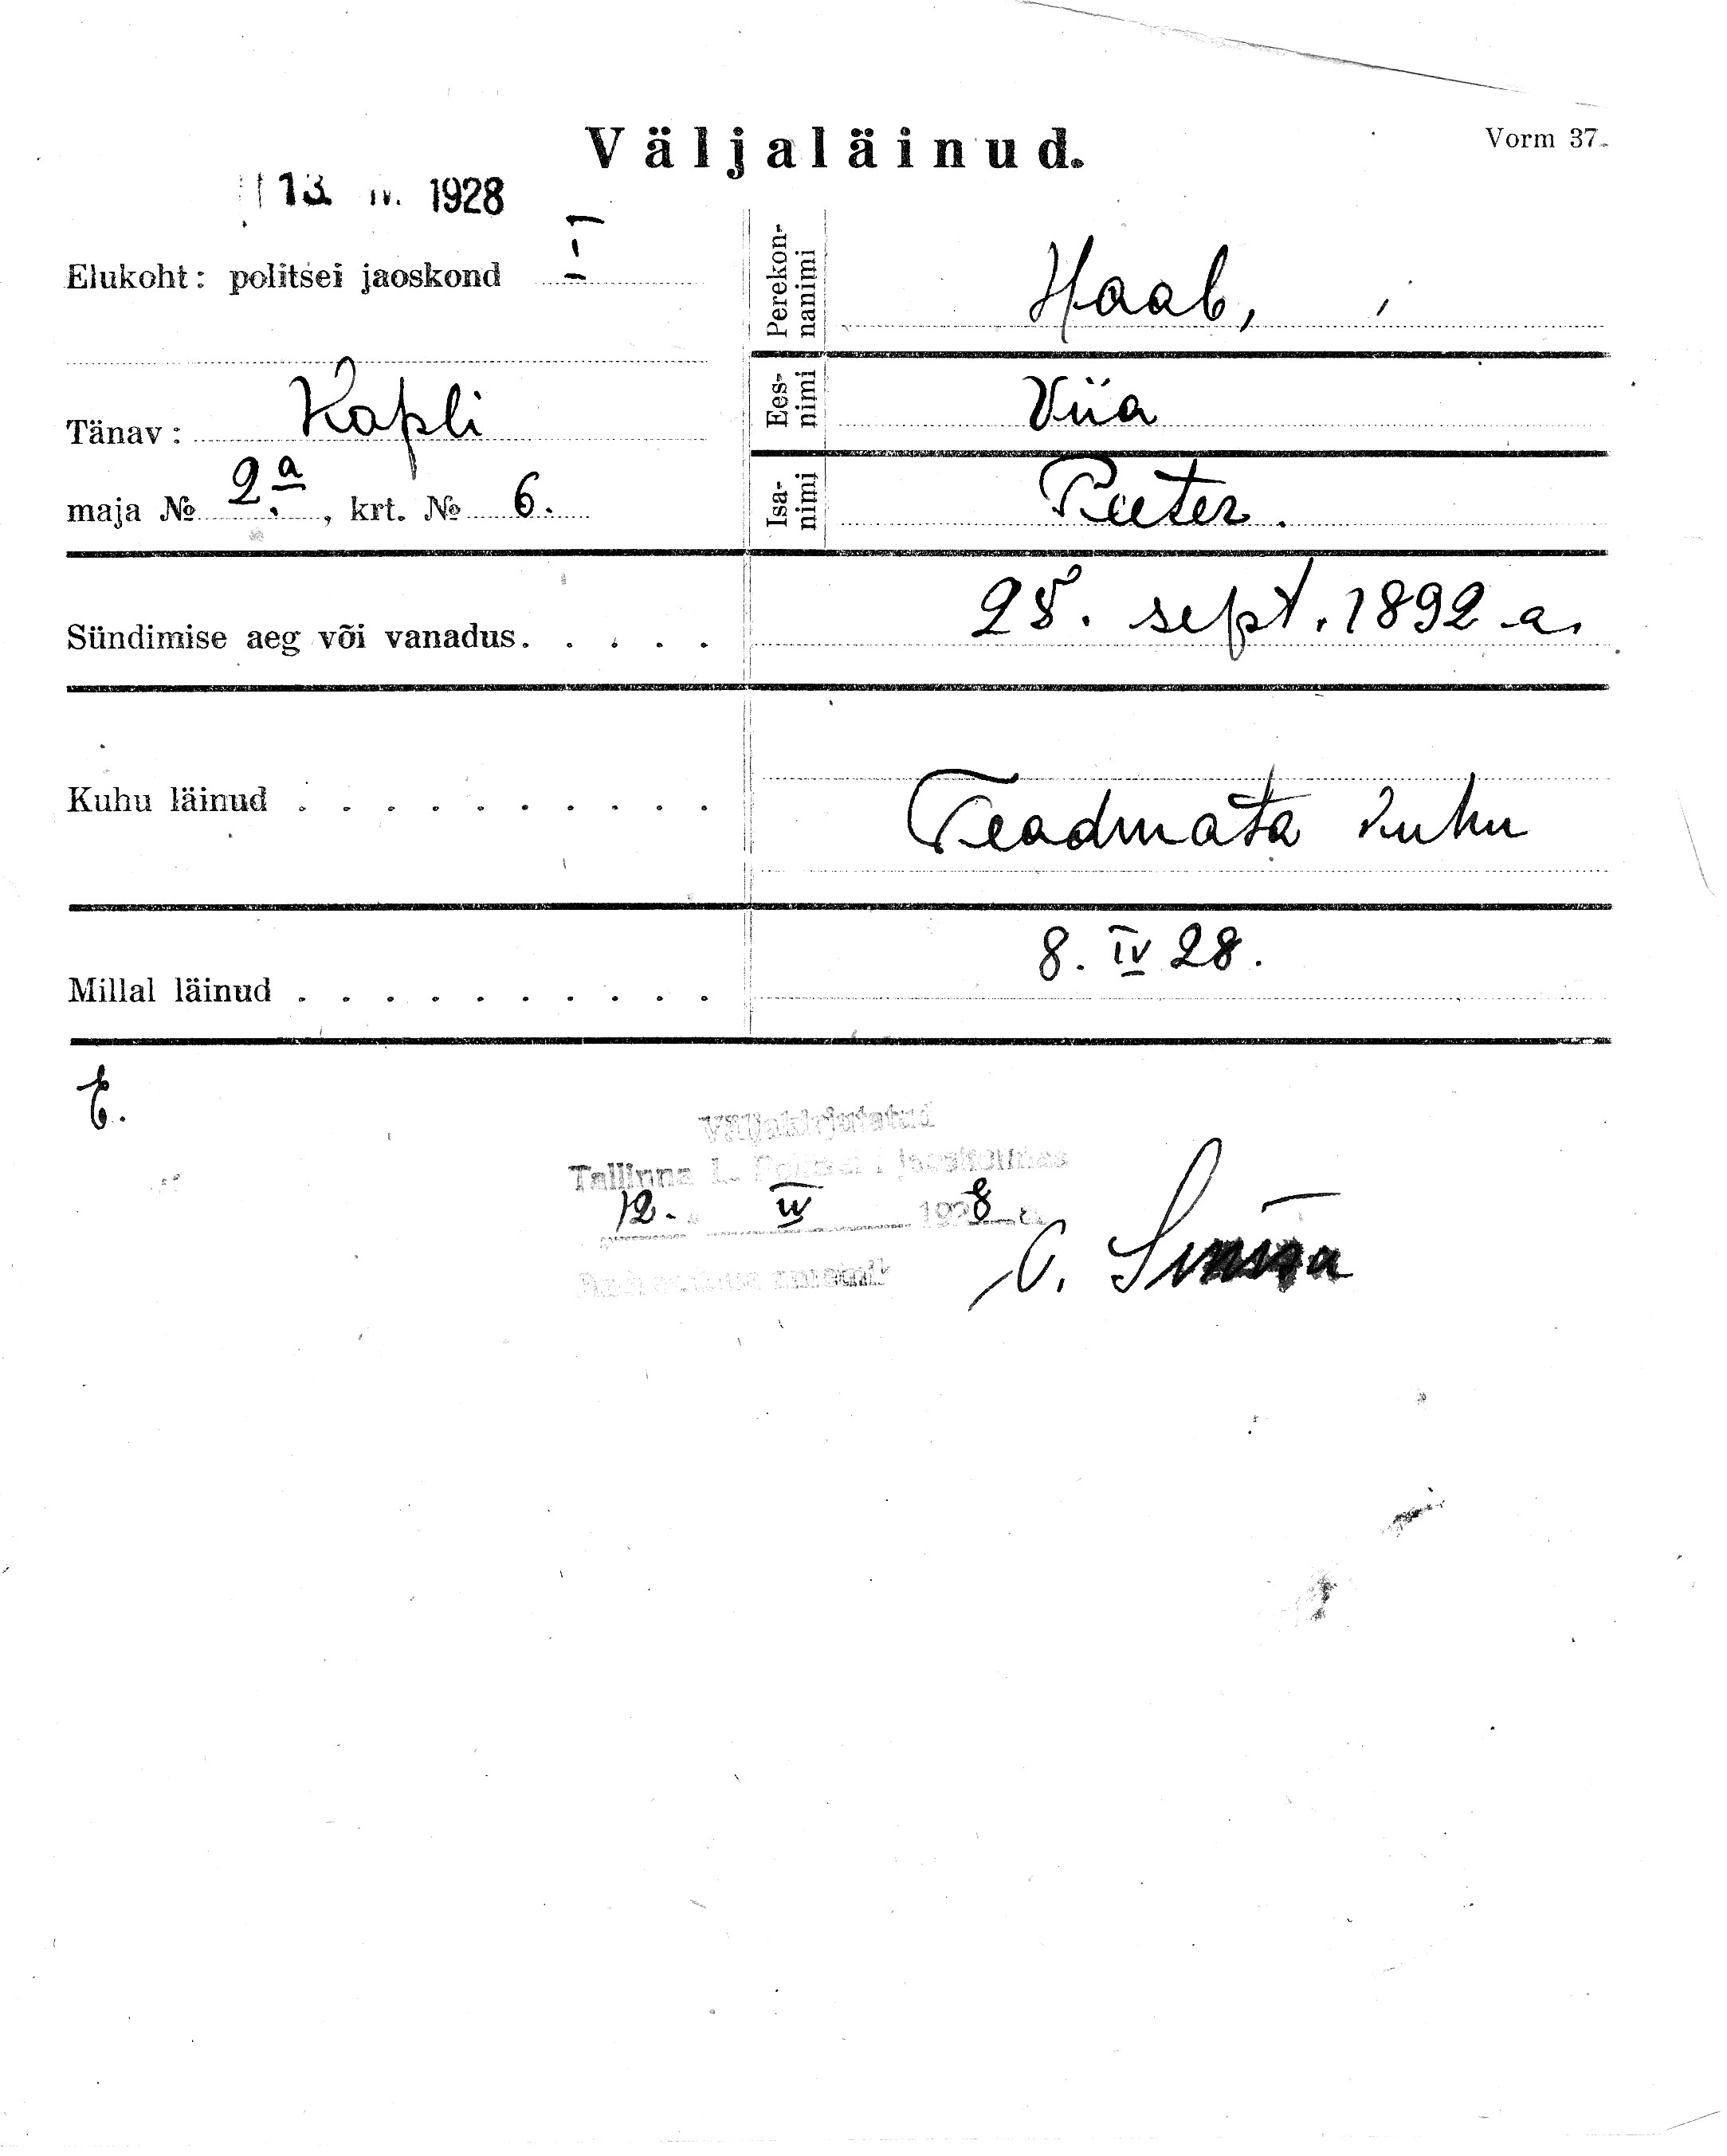 Väljaläinud.
Vorm 37.
13. IV. 1928
Elukoht: politsei jaoskond I
Perekon-
nanimi
Haab,
Tänav: Kopli
Ees-
nimi
Viia
maja № 2a, krt. № 6.
Isa-
nimi
Peeter.
Sündimise aeg või vanadus. . . . . 28. sept. 1892 a.
Kuhu läinud . . . . . . . . . . Teadmata kuhu
Millal läinud . . . . . . . . . . 8. IV 28.
E.
Väljakirjutatud
Tallinna L. Politsei I jaoskonnas
12. IV 1928 a.
ametnik